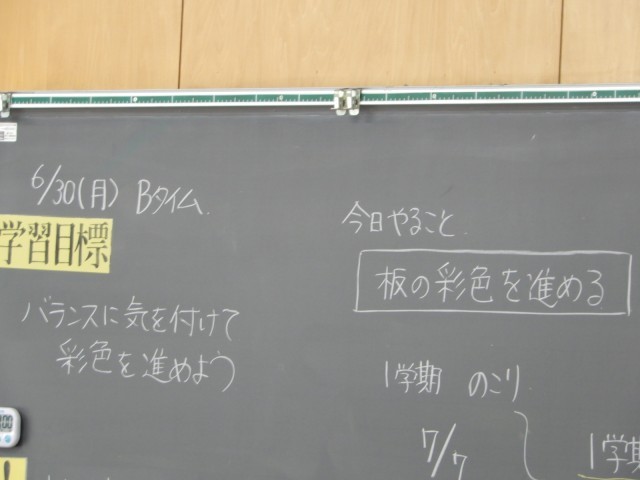 6/30(月) Bタイム.
学習目標
バランスに気を付けて
彩色を進めよう
今日やること.
板の彩色を進める
1学期 のこり
7/7
1学期